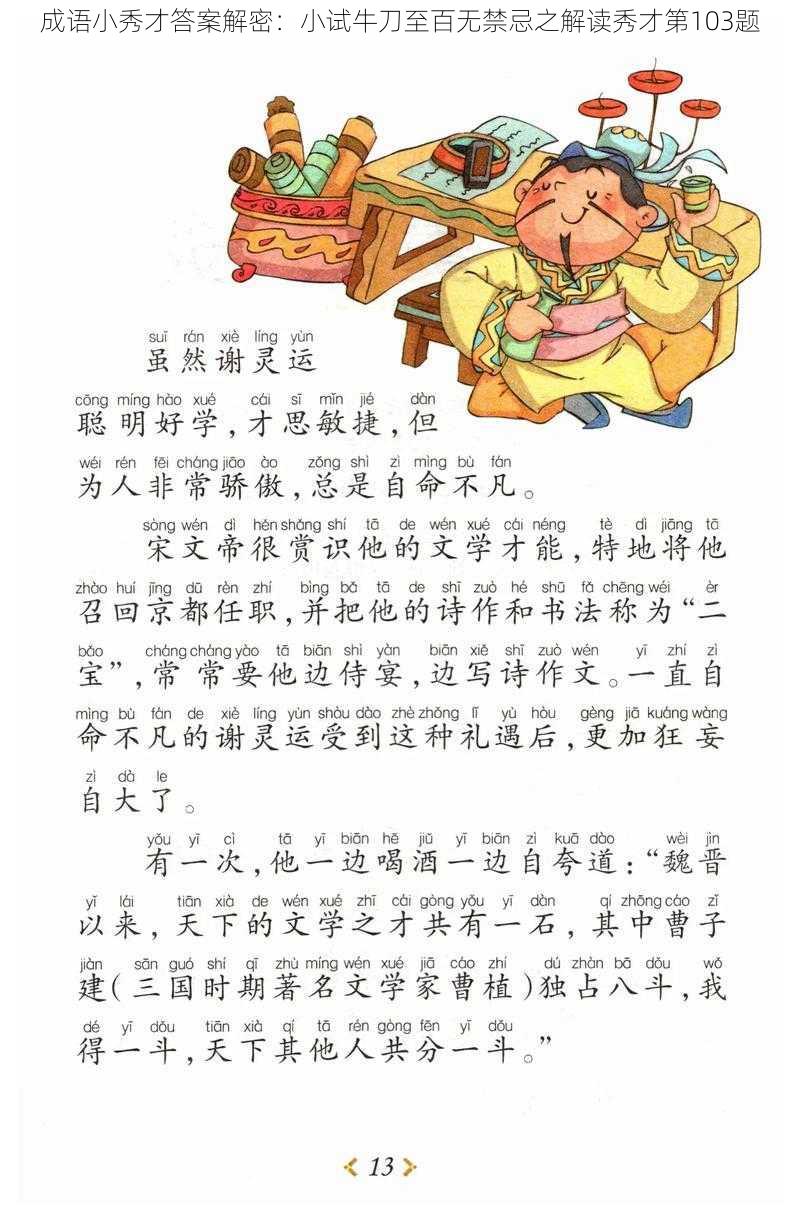 成语小秀才答案解密：小试牛刀至百无禁忌之解读秀才第103题
suī rán xiè líng yùn
虽然谢灵运
cōng míng hào xué cái sī mǐn jié dàn
聪明好学，才思敏捷，但
wéi rén fēi cháng jiāo ào zǒng shì zì mìng bù fán
为人非常骄傲，总是自命不凡。
sòng wén dì hěn shǎng shí tā de wén xué cái néng tè dì jiāng tā
宋文帝很赏识他的文学才能，特地将他
zhào huí jīng dū rèn zhí bìng bǎ tā de shī zuò hé shū fǎ chēng wéi èr
召回京都任职，并把他的诗作和书法称为“二
bǎo cháng cháng yào tā biān shì yàn biān xiě shī zuò wén yī zhí zì
宝”，常常要他边侍宴，边写诗作文。一直自
mìng bù fán de xiè líng yùn shòu dào zhè zhǒng lǐ yù hòu gèng jiā kuáng wàng
命不凡的谢灵运受到这种礼遇后，更加狂妄
zì dà le
自大了。
yǒu yī cì tā yī biān hē jiǔ yī biān zì kuā dào wèi jìn
有一次，他一边喝酒一边自夸道：“魏晋
yǐ lái tiān xià de wén xué zhī cái gòng yǒu yī dàn qí zhōng cáo zǐ
以来，天下的文学之才共有一石，其中曹子
jiàn sān guó shí qī zhù míng wén xué jiā cáo zhí dú zhàn bā dǒu wǒ
建（三国时期著名文学家曹植）独占八斗，我
dé yī dǒu tiān xià qí tā rén gòng fēn yī dǒu
得一斗，天下其他人共分一斗。”
13